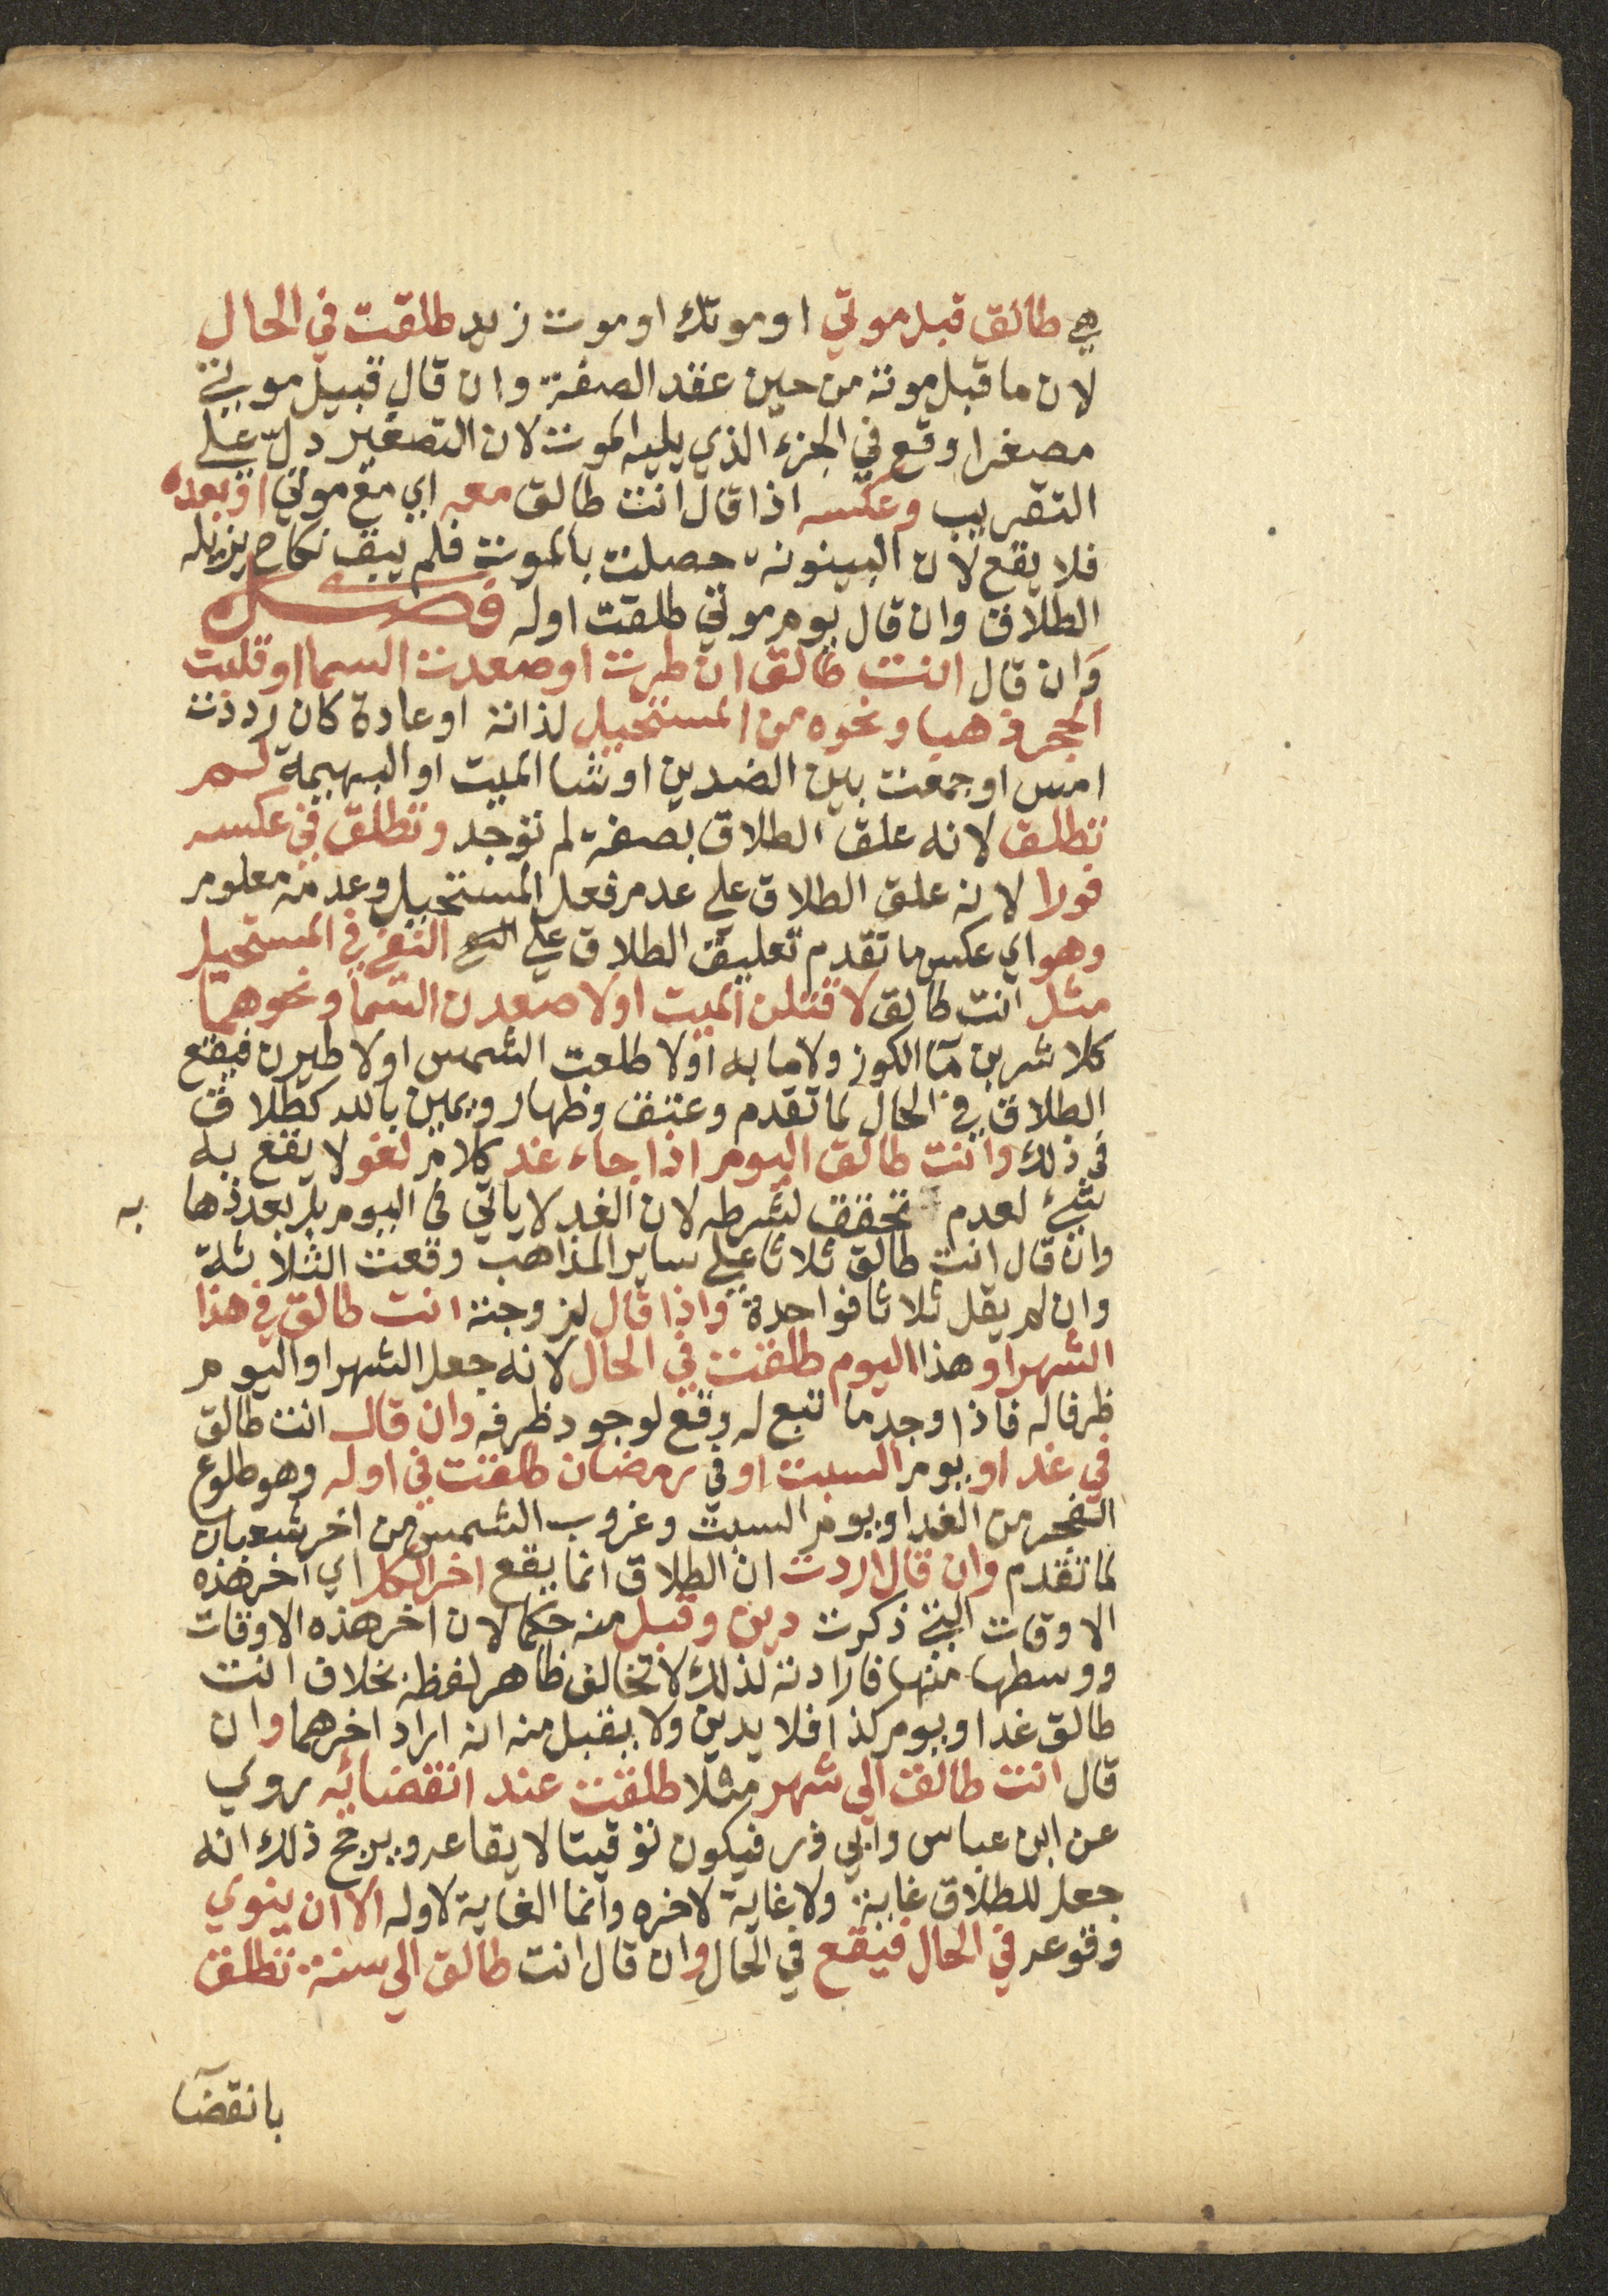 هي طالق قبل موتي او موتك او موت زيد طلقت في الحال
لان ما قبل موته من حين عقد الصفة وان قال قبيل موتي
مصغرا وقع في الجزء الذي يليه الموت لان التصغير دلّ علي
التقريب وعكسه اذا قال انت طالق معه اي مع موتي او بعده
فلا يقع لان البينونه حصلت بالموت فلم يبق نكاح يزيله
الطلاق وان قال يوم موتي طلقت اوله فصل
وان قال انت طالق ان طرت او صعدت السما او قلبت
الحجر ذهبا ونحوه من المستحيل لذاته او عادة كان رددت
امس او جمعت بين الضدين او شا الميت او البهيمة لم
تطلق لانه علق الطلاق بصفة لم توجد وتطلق في عكسه
فورا لانه علق الطلاق علي عدم فعل المستحيل وعدمه معلوم
وهو اي عكس ما تقدم تعليق الطلاق علي النفي في المستحيل
مثل انت طالق لاقتلن الميت او لاصعدن السما ونحوهما
كلا شربن مآ الكوز ولا ما به او لا طلعت الشمس او لاطيرن فيقع
الطلاق في الحال لما تقدم وعتق وظهار ويمين بالله كطلاق
في ذلك وانت طالق اليوم اذا جاء غد كلام لغو لا يقع به
شيء لعدم تحقق لشرطه لان الغد لا ياتي في اليوم بل بعد ذها به
وان قال انت طالق ثلاثا علي ساير المذاهب وقعت الثلاثة
وان لم يقل ثلاثا فواحدة واذا قال لزوجته انت طالق في هذا
الشهر او هذا اليوم طلقت في الحال لانه جعل الشهر او اليوم
ظرفا له فاذا وجد ما تبع له وقع لوجود ظرفه وان قال انت طالق
في غد او يوم السبت او في رمضان طلقت في اوله وهو طلوع
الفجر من الغد او يوم السبت وغروب الشمس من اخر شعبان
لما تقدم وان قال اردت ان الطلاق انما يقع اخر الكل اي اخر هذه
الاوقات التي ذكرت دين وقبل منه حكما لان اخر هذه الاوقات
ووسطها منها فارادته لذلك لا تخالف ظاهر لفظه بخلاف انت
طالق غدا او يوم كذا فلا يدين ولا يقبل منه انه اراد اخرهما وان
قال انت طالق الي شهر مثلا طلقت عند انقضائه روي
عن ابن عباس وابي ذر فيكون توقيتا لايقاعه ويرجح ذلك انه
جعل للطلاق غاية ولا غاية لاخره وانما الغاية لاوله الا ان ينوي
وقوعه في الحال فيقع في الحال وان قال انت طالق الي سنة تطلق
بانقضآ